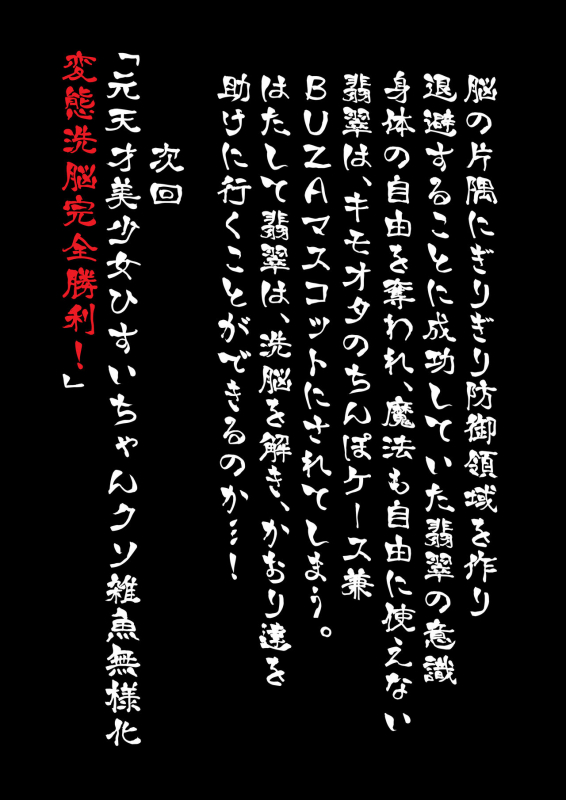 脳の片隅にぎりぎり防御領域を作り
退避することに成功していた翡翠の意識
身体の自由を奪われ、魔法も自由に使えない
翡翠は、キモオタのちんぽケース兼
BUZAマスコットにされてしまう。
はたして翡翠は、洗脳を解き、かおり達を
助けに行くことができるのか…！
次回
「元天才美少女ひすいちゃんクソ雑魚無様化
変態洗脳完全勝利！」